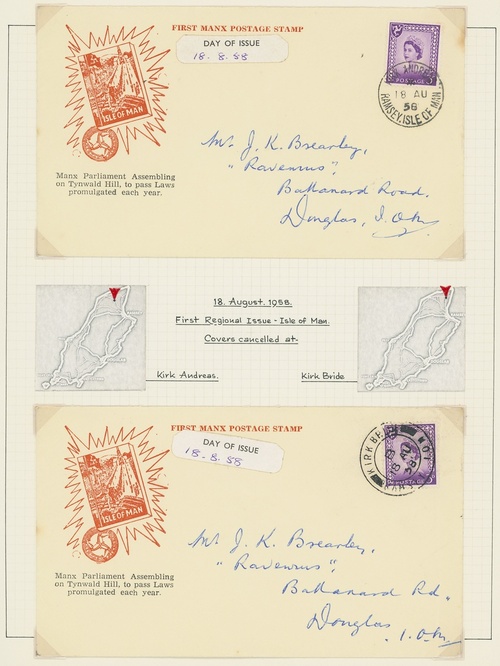 FIRST MANX POSTAGE STAMP
DAY OF ISSUE
18. 8. 58
ISLE OF MAN
KIRK ANDREAS
18 AU
58
RAMSEY, ISLE OF MAN
POSTAGE
Manx Parliament Assembling
on Tynwald Hill, to pass Laws
promulgated each year.
Mr J. K. Brearley,
Ballanard Road,
Douglas, I.O.M.
18. August. 1958.
First Regional Issue - Isle of Man.
Covers cancelled at
Kirk Andreas.
Kirk Bride
FIRST MANX POSTAGE STAMP
DAY OF ISSUE
18. 8. 58
ISLE OF MAN
KIRK BRIDE
18 AU
58
POSTAGE
Manx Parliament Assembling
on Tynwald Hill, to pass Laws
promulgated each year.
Mr J. K. Brearley,
Ballanard Rd.
Douglas
I.O.M.